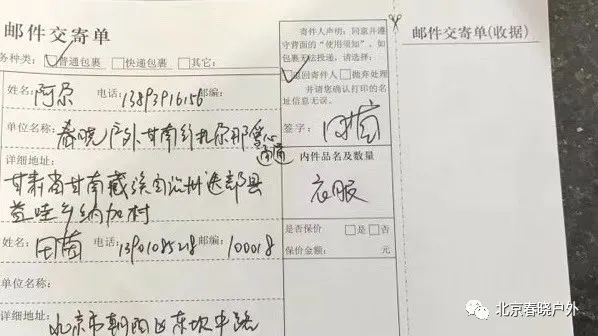 邮件交寄单
各种类: ☑普通包裹 □快递包裹 □其它:
姓名: 阿尕 电话: 13893916156 邮编:
单位名称: 春晓户外甘南扎尕那爱心
详细地址:
甘肃省甘南藏族自治州迭部县
益哇乡纳加村
姓名: 田南 电话: 邮编: 100018
单位名称:
详细地址: 北京市朝阳区东坝中路
寄件人声明: 同意并遵
守背面的“使用须知”, 如
包裹无法投递, 请选择:
☑退回寄件人 □抛弃处理
并请您确认打印的名
址信息无误。
签字: 田南
内件品名及数量
衣服
是否保价 □是 □否
保价金额: 元
邮件交寄单(收据)
北京春晓户外